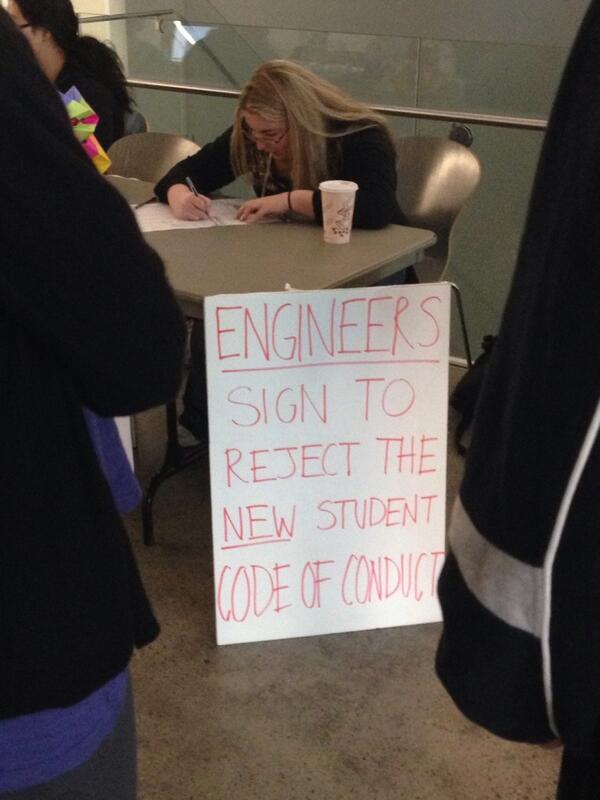 ENGINEERS
SIGN TO
REJECT THE
NEW STUDENT
CODE OF CONDUCT